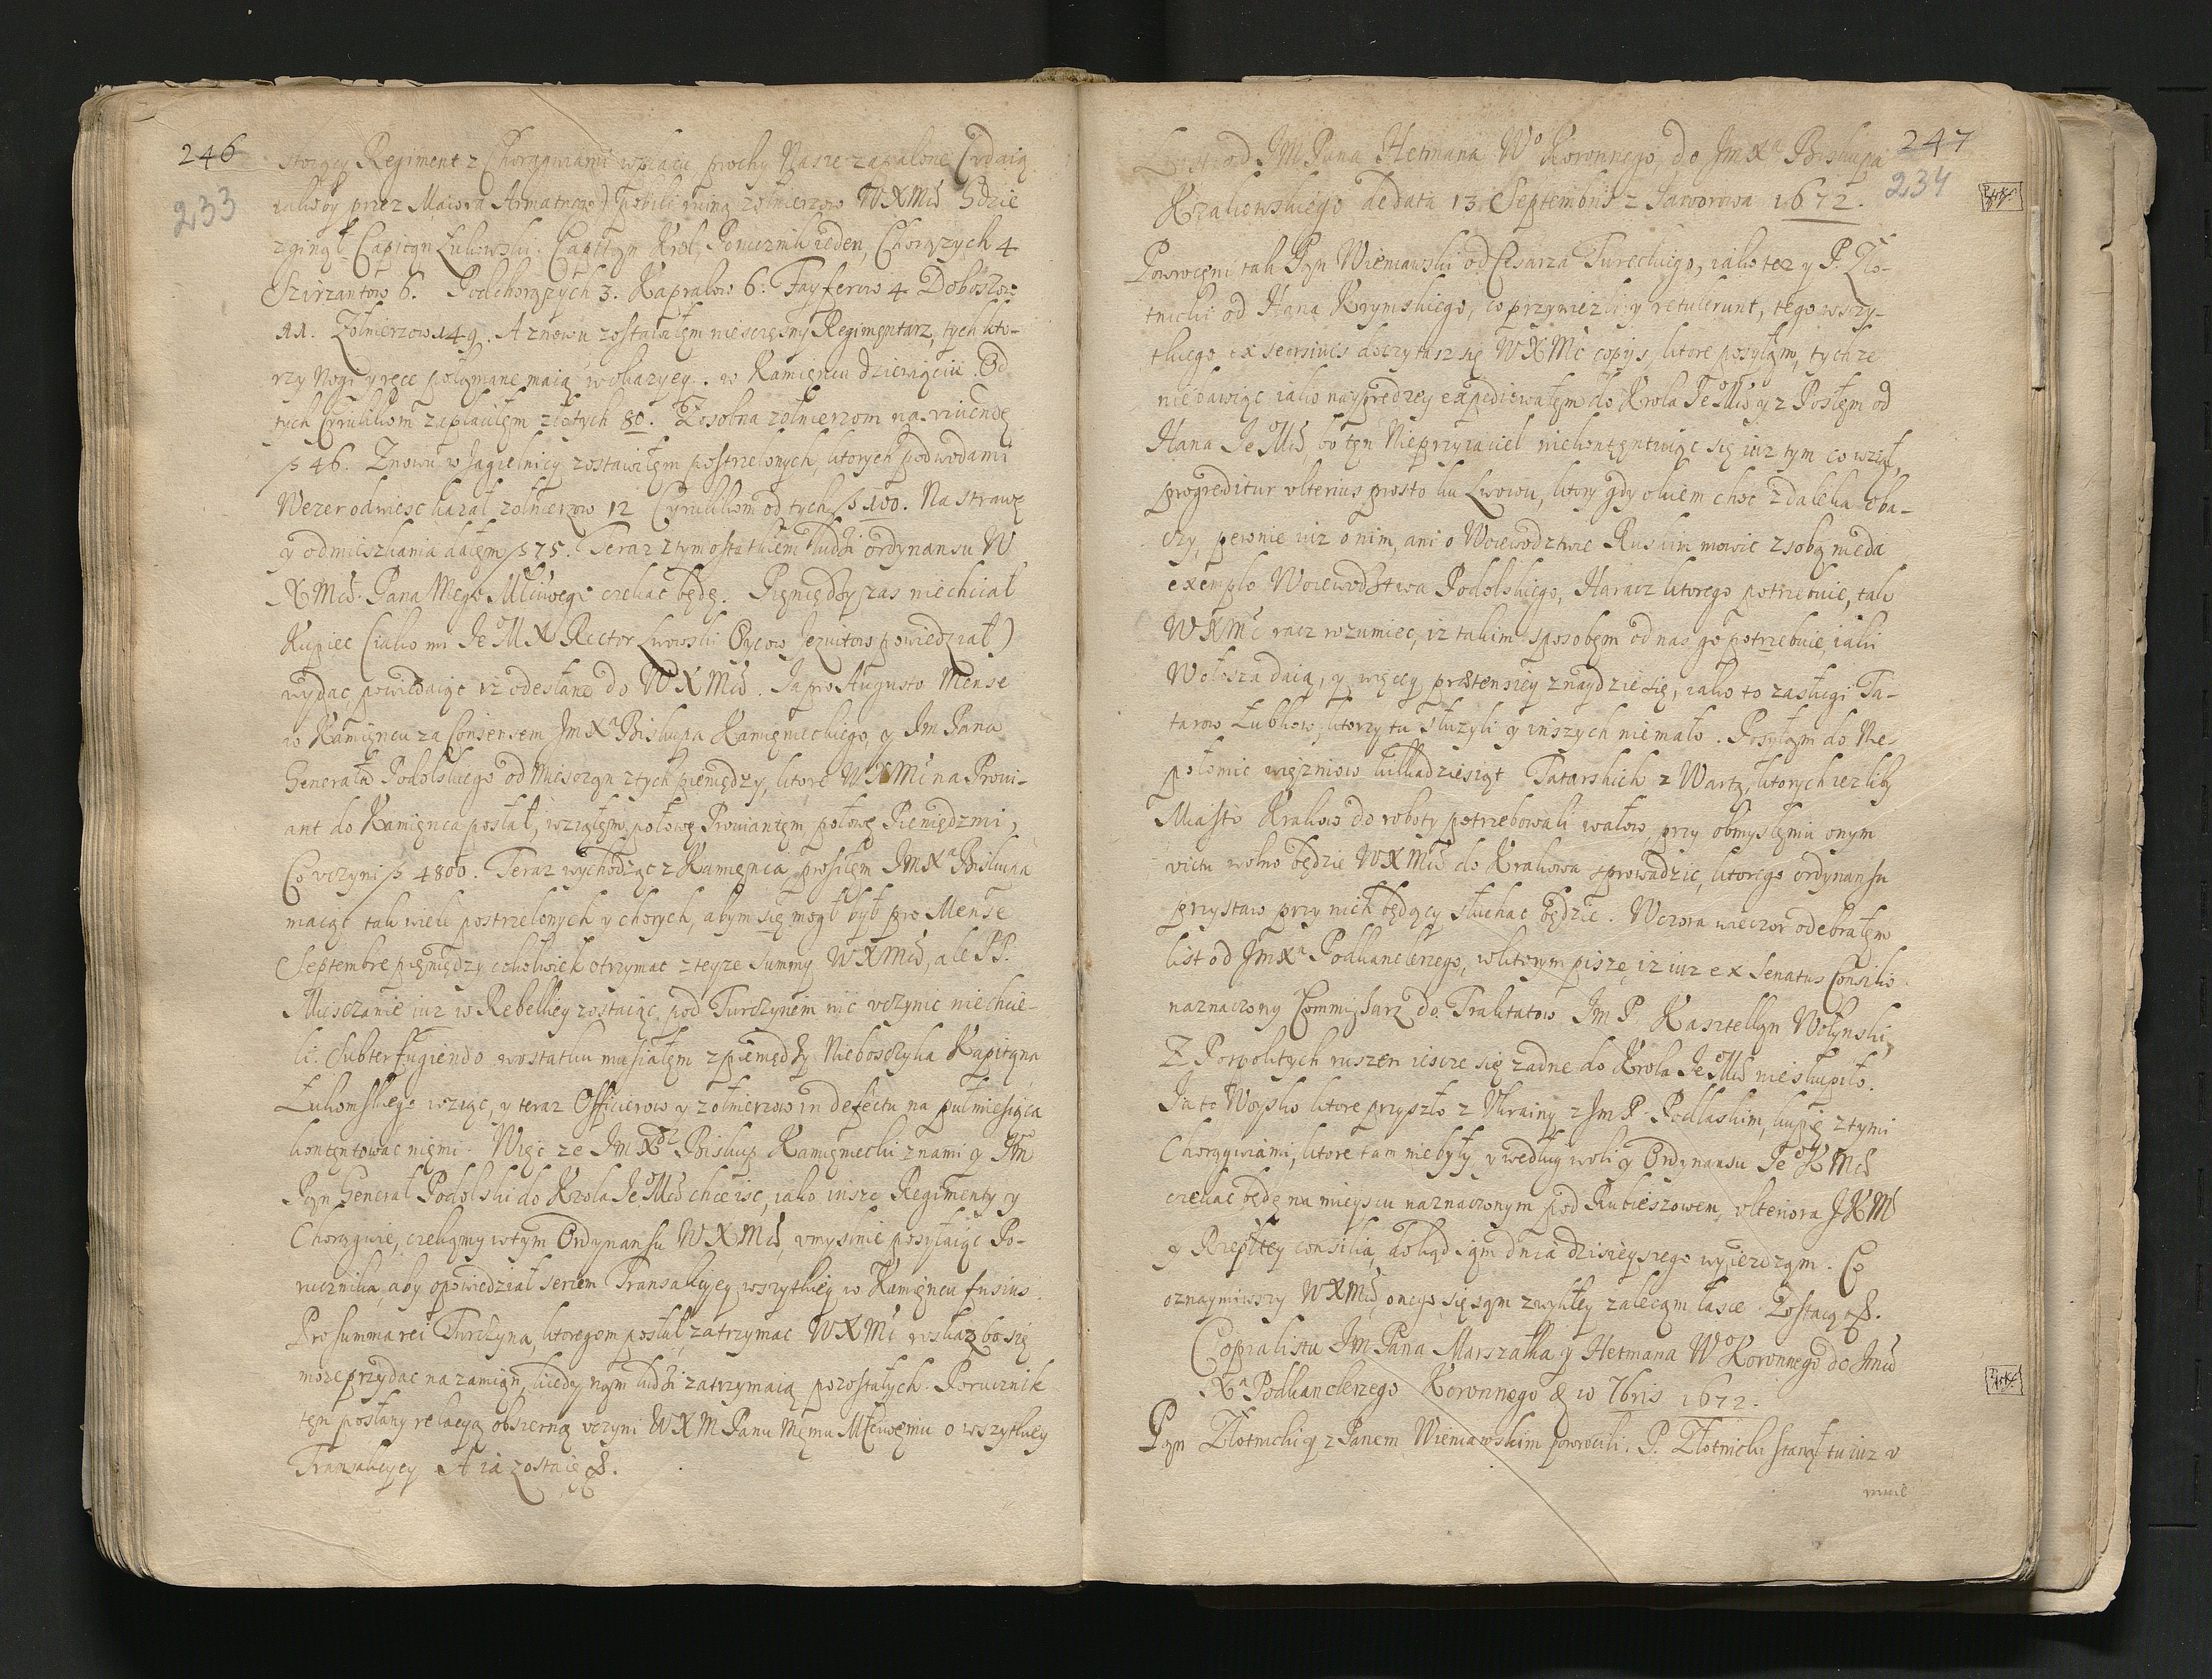 246
233
stoiący Regiment z Chorągwiami prochy Nasze zapalone (vdaią
iakoby przez Maiora Armatnego) pobili ruiną zołnierzow WXMci Gdzie
zginął Capitąn Łukowski. Capitąn Krol, Porucznik ieden, Chorązych 4
Szirzantow 6. Podchorązych 3. Kapralow 6. Fayferow 4 Doboszow
11. Zołnierzow 149. A znowu zostawiłem nieszczęsny Regimentarz, tych kto-
rzy Nogi y ręce połąmane maią w okazyey. w Kamięncu dziewięciu. Od
tych Cyrulikom zapłaciłem złotych 80. Zosobna zołnierzom na viuendę
ƒ 46. Znowu w Jagielnicy zostawiłem postrzelonych, ktorych podwodami
Wezer odwiesc kazał zołnierzow 12 Cyrulikom od tych ƒ 100. Na strawę
y odmieszkania dałem ƒ 75. Teraz z tym ostatkiem ludzi ordynansu W
XMci Pana Mego Mciwego czekac będę. Pięniędzy zas niechciał
Kupiec (iako mi JeoM X Rector Lwowski Oycow Jezuitow powiedział)
wydac powiedaiąc iz odesłane do WXMci. Ja pro Augusto Mense
w Kamięncu za Consensem JmXa Biskupa Kamięnieckiego, y Jm Pana
Generała Podolskiego od Miesczan z tych pieniędzy, ktore WXMc na Prowi-
ant do Kamięnca posłał, wziąłem połowę Prowiantem połowę Pieniędzmi,
Co vczyni ƒ 4800. Teraz wychodząc z Kamięnca prosiłem JmXa Biskupa
maiąc tak wiele postrzelonych y chorych, abym się mogł był pro Mense
Septembre pięniędzy cokolwiek otrzymac z teyze Summy WXMci, ale PP.
Miesczanie iuz w Rebelliey zostaiąc pod Turczynem nic vczynic niechcie-
li. Subterfugiendo wostatku musiałem z pieniędzy Nieboszczyka Kapitąna
Łukomskiego wziąc, y teraz Officierow y zołnierzow in defectu na pułmiesiąca
kontentowac niemi. Więc ze Jm Xdz Biskup Kamięniecki z nami y Jm
Pąn Generał Podolski do Krola JeoMci chce isc, iako insze Regimenty y
Chorągwie, czekąmy w tym Ordynansu WXMci vmyslnie posyłaiąc Po-
rucznika, aby opowiedział seriem Transakcyey wszytkiey w Kamięncu fusius.
Pro summa rei Turczyna, ktoregom posłał, zatrzymac WXMc wskaz bo się
moze przydac na zamiąn, kiedy nąm ludzi zatrzymaią pozostałych. Porucznik
ten posłany relacyą obszerną vczyni WXM Panu Memu Mciwemu o wszytkiey
Transakcyey. A ia zostaię &.
247
234
List od JM Pana Hetmana Wo Koronnego do JmXa Biskupa
Krakowskiego de data 13 Septembris z Jaworowa 1672.
Powrocęni tak Pąn Wieniawski od Cesarza Tureckiego, iako tez y P. Zło-
tnicki od Hana Krymskiego, co przywiezli y retulerunt, tego wszy-
tkiego ex seorsiuis doczytasz się WXMc copys, ktore posyłąm, tychze
niebawiąc iako nayprędzey expediowałem do Krola JeoMci y z Posłem od
Hana JeoMci, bo ten Nieprzyiaciel niekontentuiąc się iuz tym co wziął,
progreditur vlterius prosto ku Lwowu, ktory gdy okiem choc z daleka oba-
czy, pewnie iuz o nim, ani o Woiewodztwie Ruskim mowic z sobą nieda
exemplo Woiewodztwa Podolskiego, Haracz ktorego potrzebuie, tak
WXMc racz rozumiec, iz takim sposobem od nas go potrzebuie, iaki
Wołosza daią, y więcey prætensiey znaydzie się, iako to zasługi Ta-
tarow Lubkow, ktorzy tu słuzyli y inszych niemało. Posyłąm do Ne-
połomic więzniow kilkadziesiąt Tatarskich z Wartą, ktorych iezliby
Miasto Krakow do roboty potrzebowali wałow, przy obmysleniu onym
victu wolno będzie WXMci do Krakowa sprowadzic, ktorego ordynansu
przystaw przy nich będący słuchac będzie. Wczora wieczor odebrałem
list od JmXa Podkanclerzego, w ktorym pisze, iz iuz ex Senatus Consilio
naznaczony Commissarz do Traktatow Jm P. Kasztelląn Wołynski,
Z Pospolitych ruszen ieszcze się zadne do Krola JeoMci nieskupiło.
Ja te Woysko ktore przyszło z Vkrainy z Jm P. Podlaskim, kupię z tymi
Chorągwiami, ktore tam niebyły y według woli y Ordynansu JeoKMci
czekac będę na mieyscu naznaczonym pod Rubieszowem, vlteriora JKM
y Rzeptey consilia, dokąd sąm dnia dzisieyszego wyiezdząm. Co
oznaymiwszy WXMci, onegoz się sąm zwykłey zalecąm łasce. Zostaiąc &.
Copia listu Jm Pana Marszałka y Hetmana Wo Koronnego do Jmci
Xa Podkanclerzego Koronnego & w 7bris 1672.
Pąn Złotnicki y z Panem Wieniawskim powrocili. P. Złotnicki stanął tu iuz v
mnie